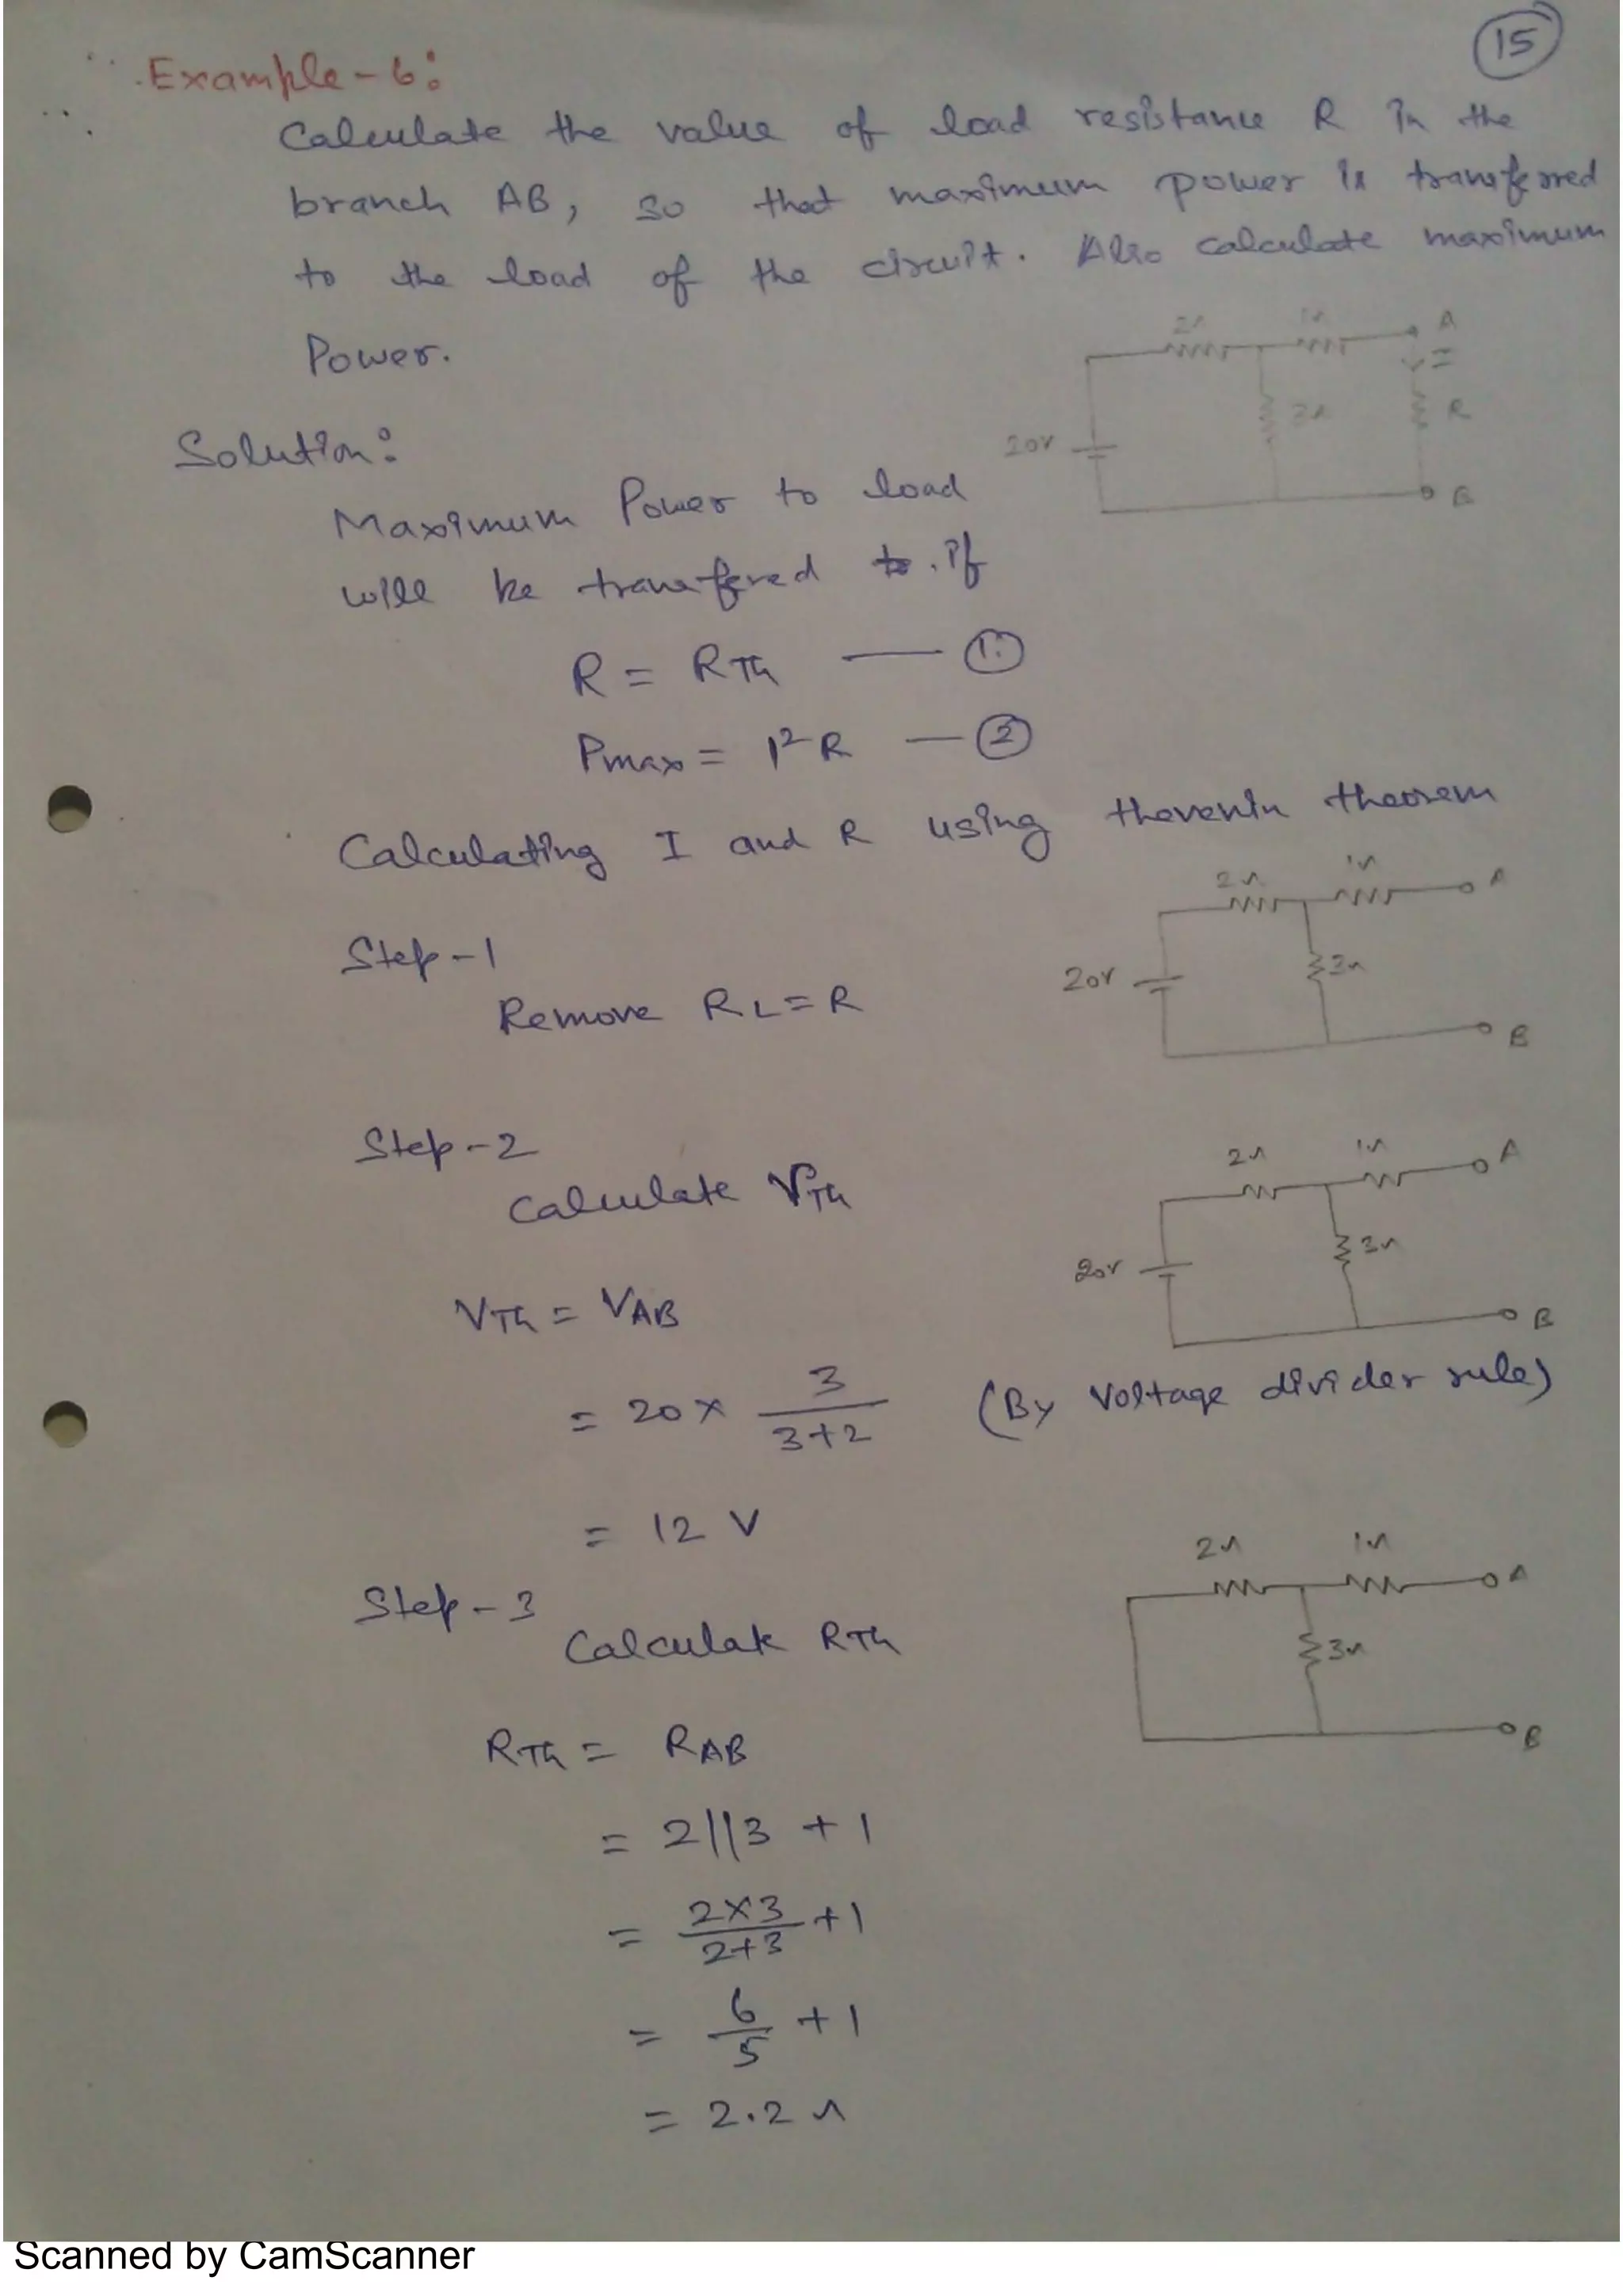 15
Example-6:
Calculate the value of load resistance R in the
branch AB, so that maximum power is transferred
to the load of the circuit. Also calculate maximum
Power.
2Ω 1Ω A
I
3Ω R
20V
B
Solution:
Maximum Power to load
will be transfered to. if
R = RTh — 1.
Pmax = I²R — 2
Calculating I and R using thevenin theorem
Step-1
Remove RL=R
2Ω 1Ω A
20V 3Ω
B
Step-2
Calculate VTh
2Ω 1Ω A
20V 3Ω
B
VTh = VAB
= 20 × 3/(3+2) (By Voltage divider rule)
= 12 V
Step-3
Calculate RTh
2Ω 1Ω A
3Ω
B
RTh = RAB
= 2||3 + 1
= (2×3)/(2+3) + 1
= 6/5 + 1
= 2.2 Ω
Scanned by CamScanner